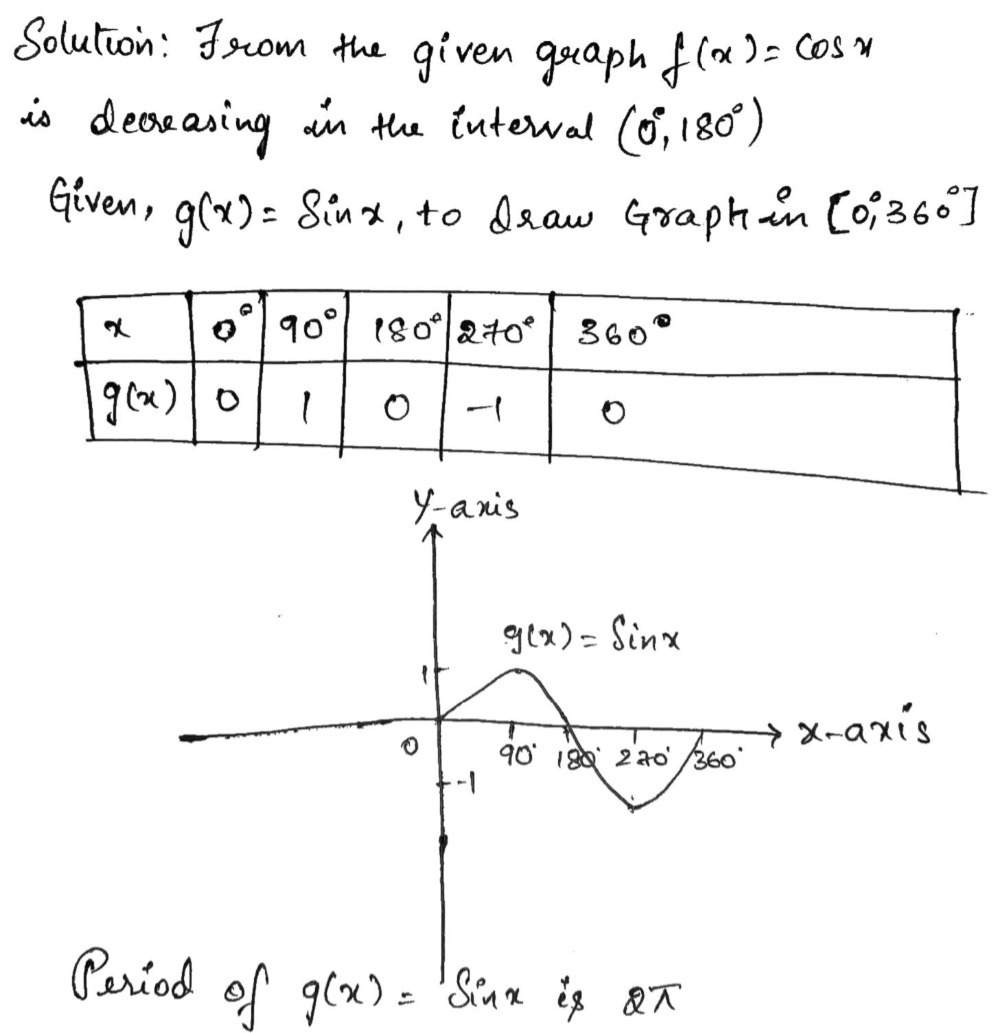 Solution: From the given graph f(x) = cos x
is decreasing in the interval (0°, 180°)
Given, g(x) = Sin x, to draw Graph in [0°, 360°]
x 0° 90° 180° 270° 360°
g(x) 0 1 0 -1 0
Y-axis
g(x) = Sin x
1
x-axis
0 90° 180° 270° 360°
-1
Period of g(x) = Sin x is 2π